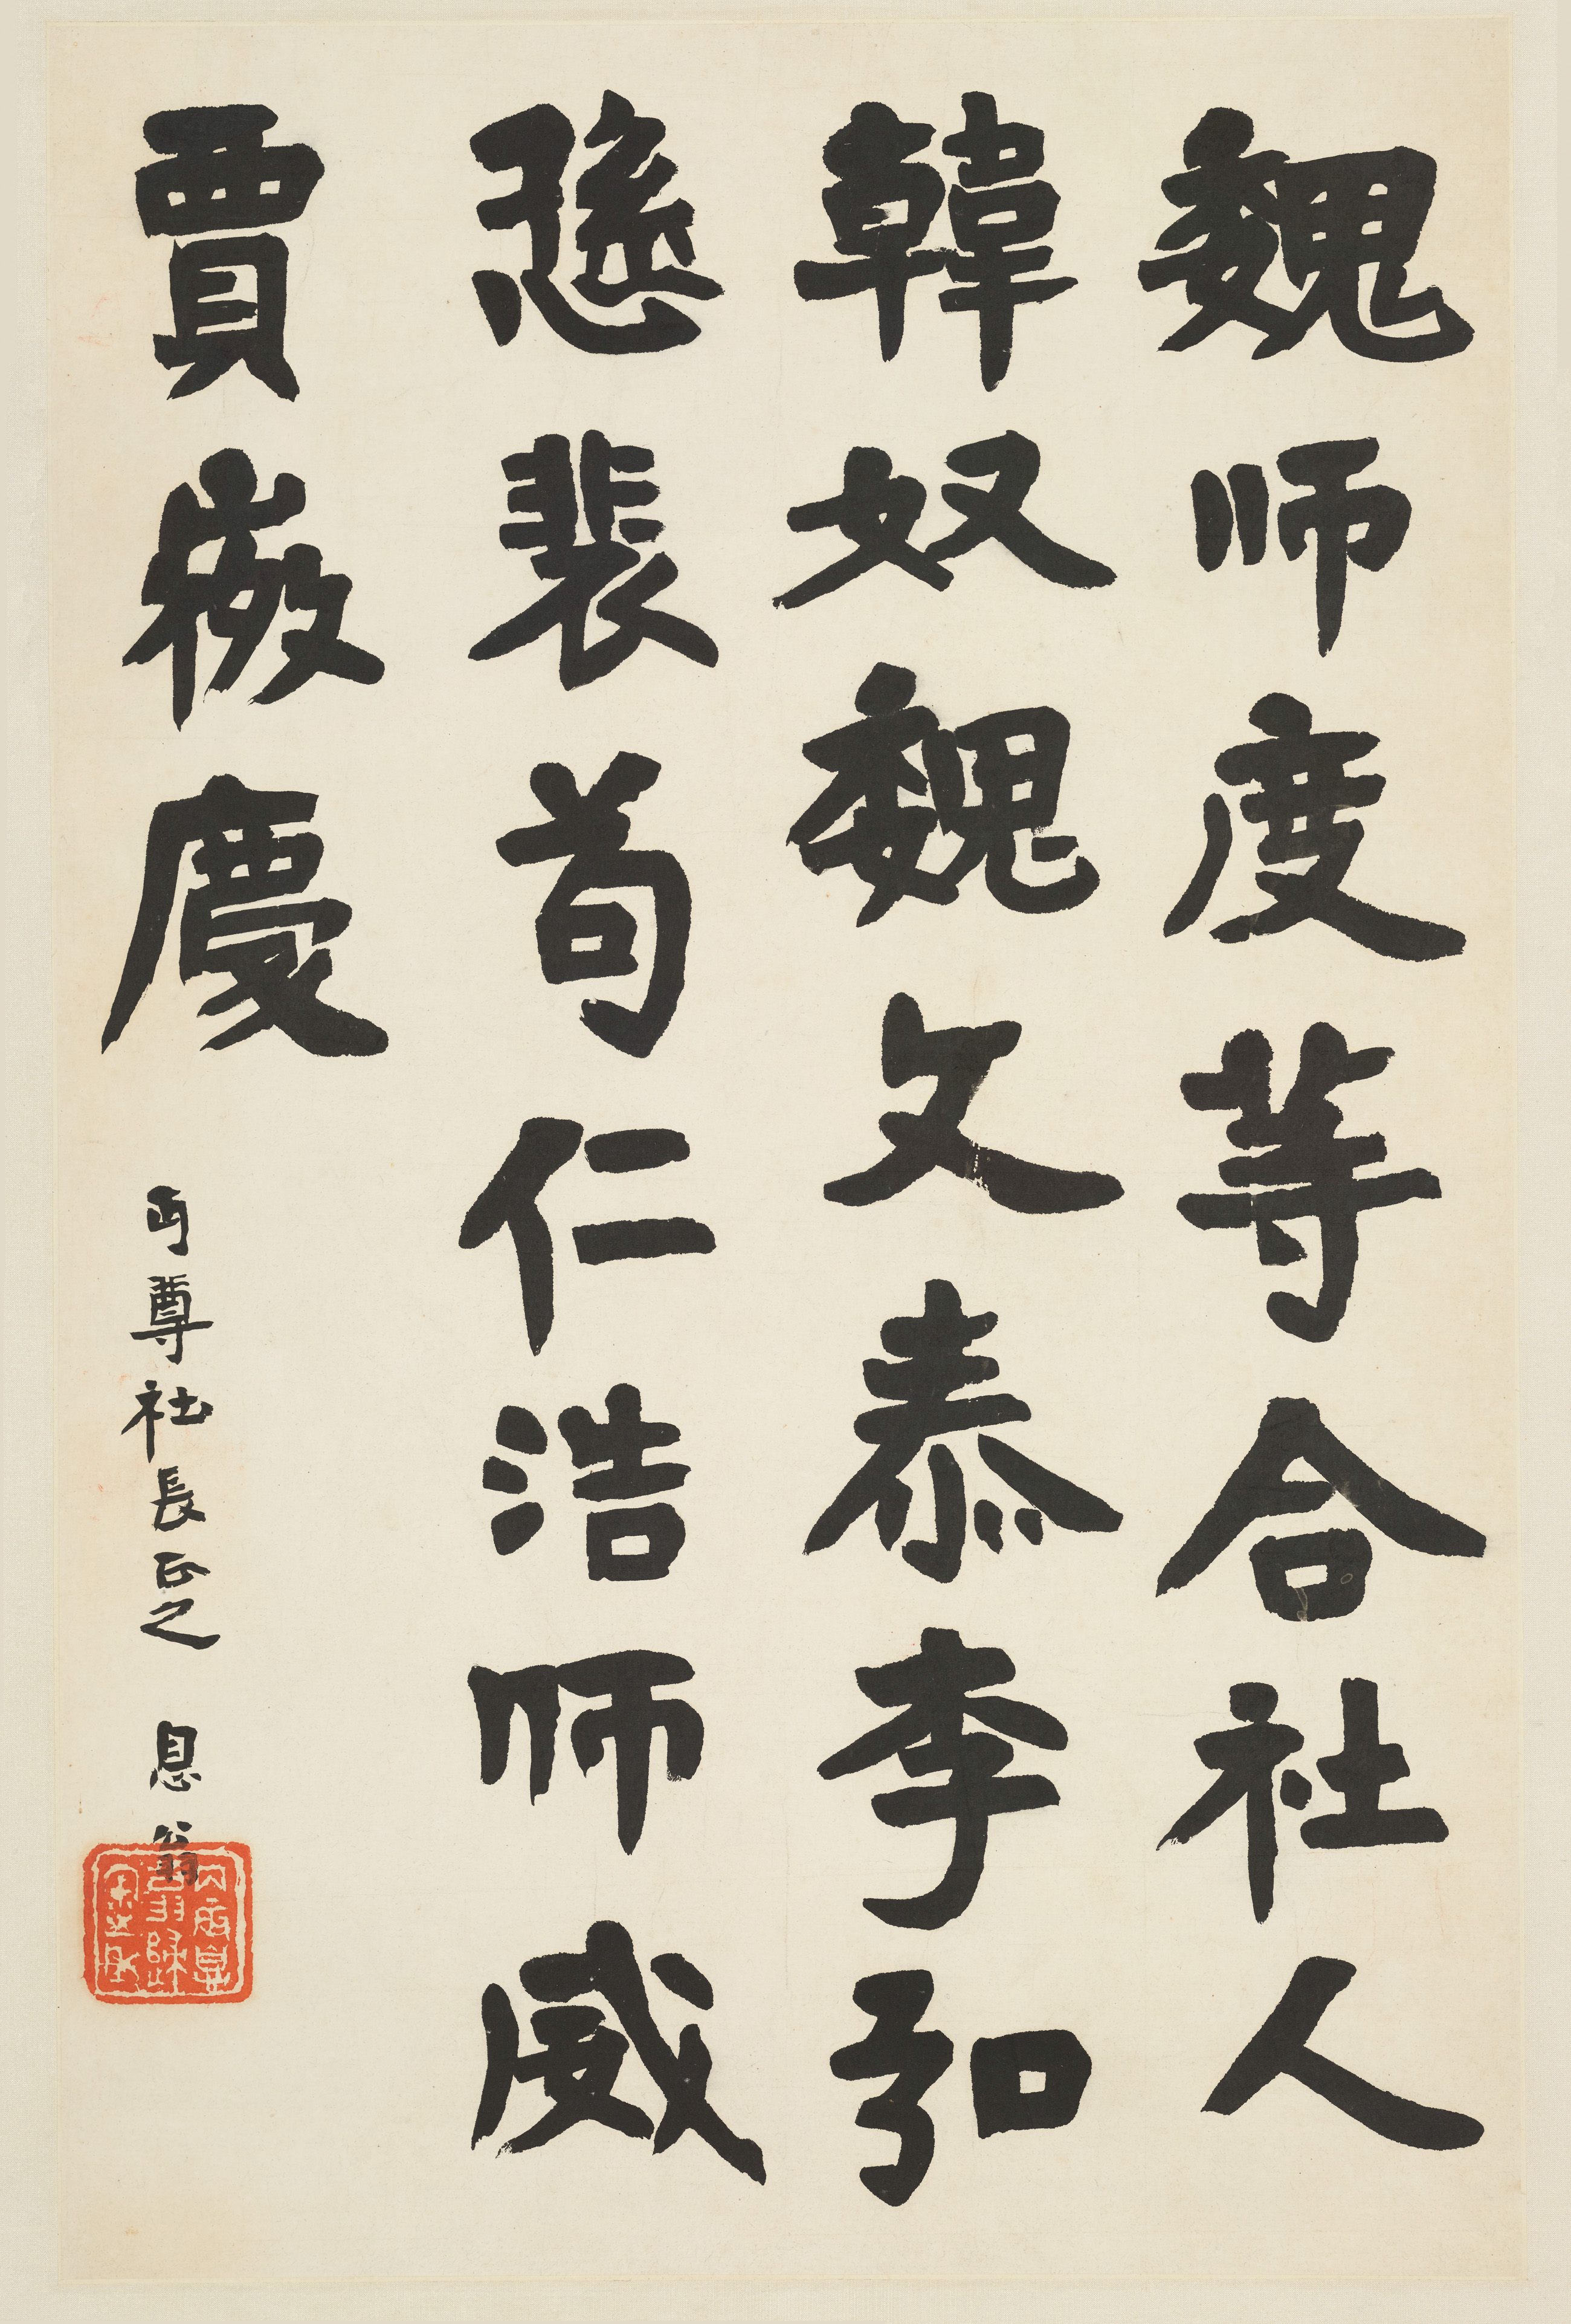 魏师度等合社人
韓奴魏文泰李弘
愻裴苟仁浩师威
賈微慶
丏尊社長正之 息翁